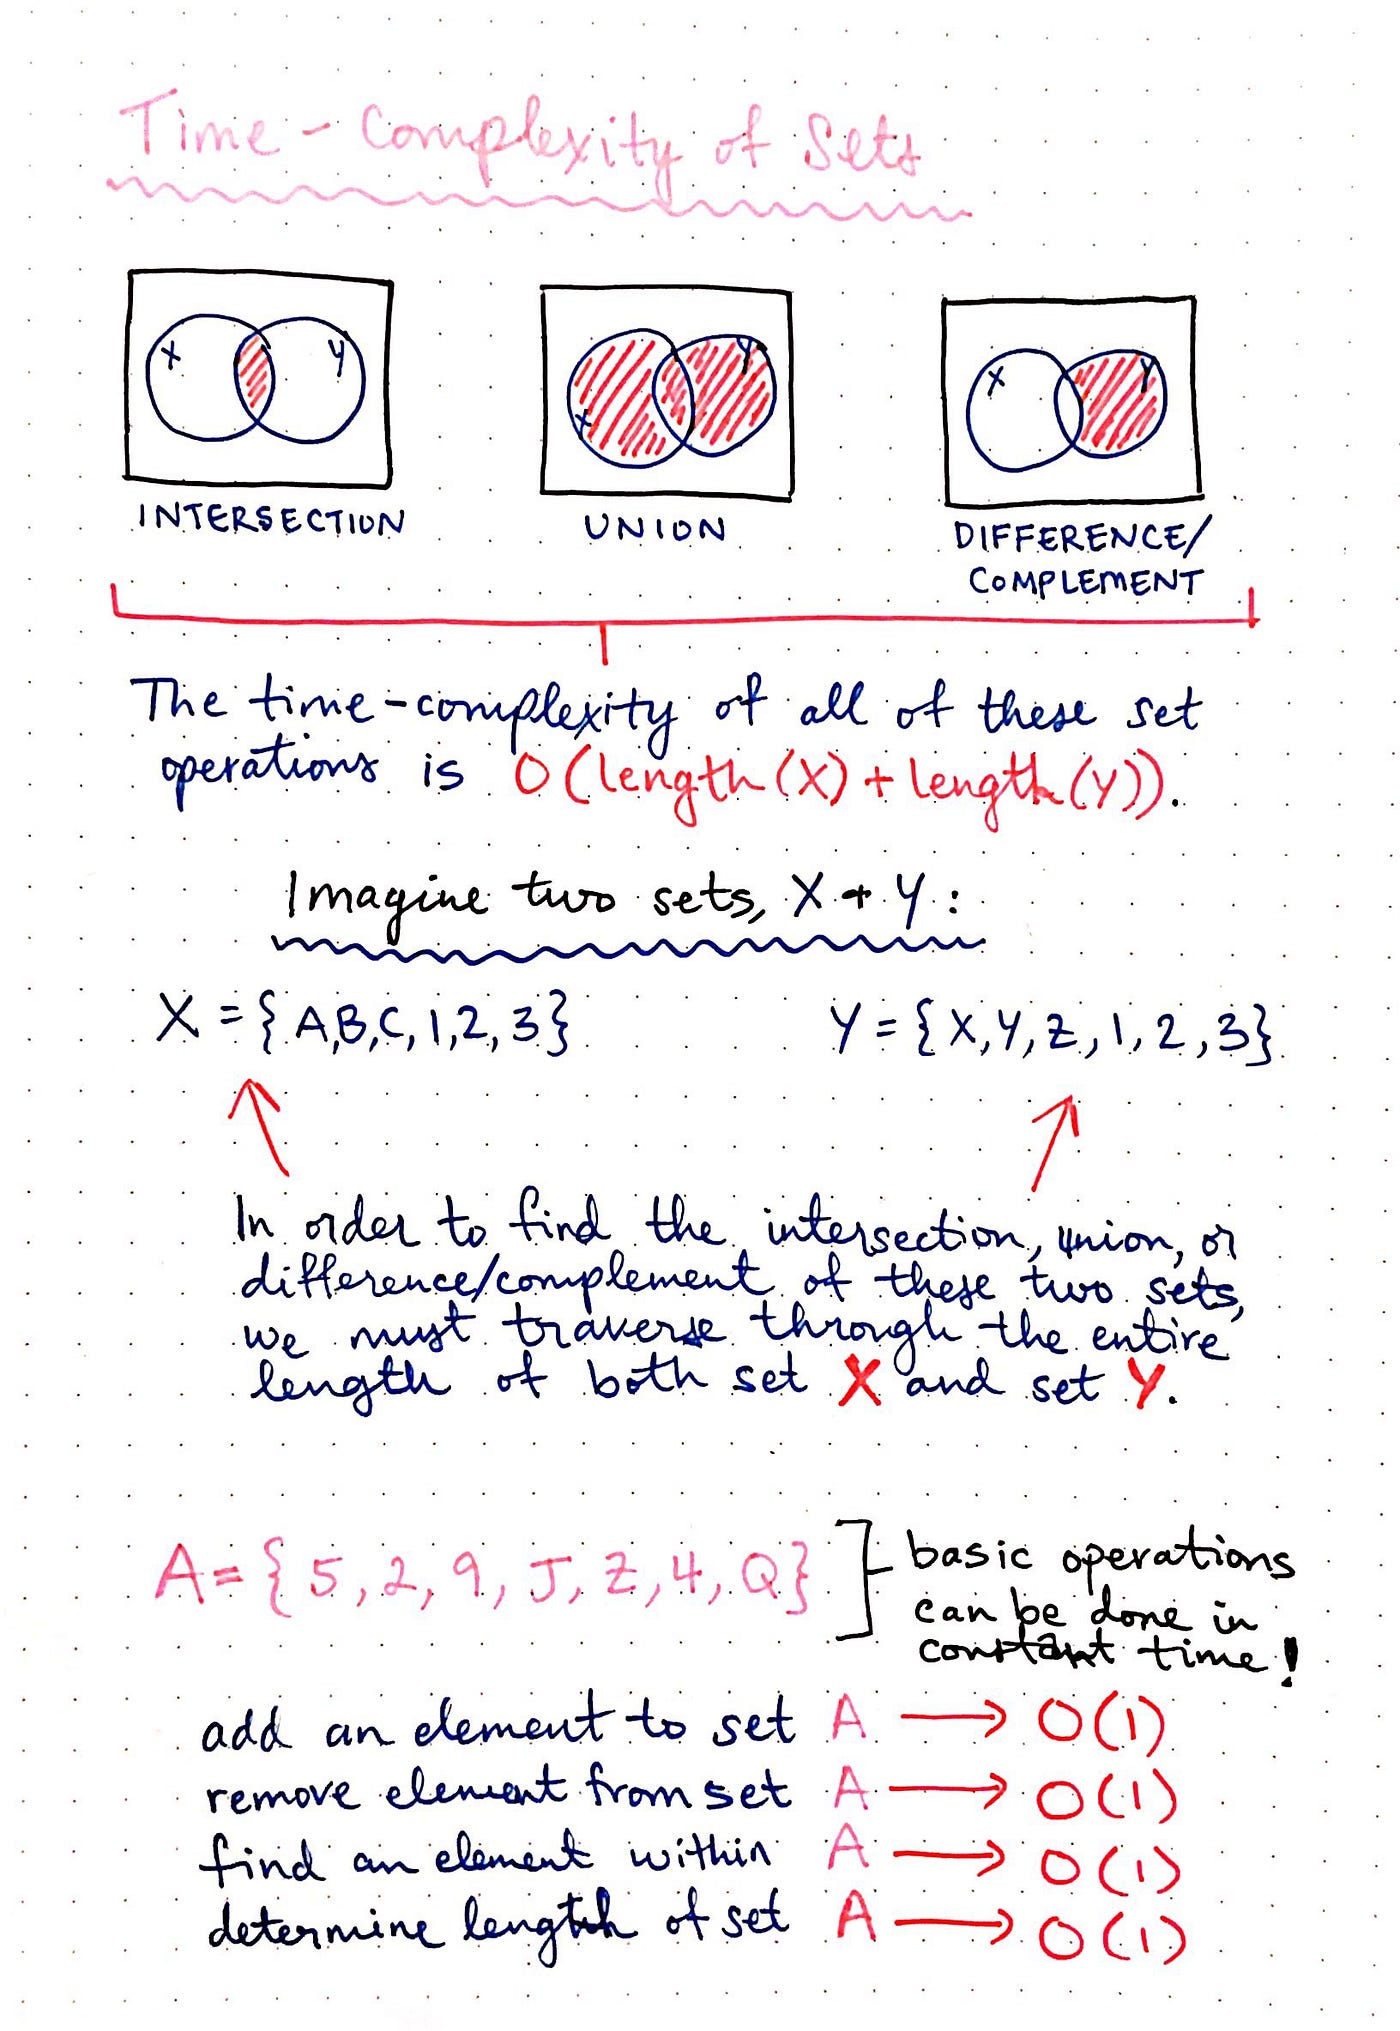 Time-Complexity of Sets
X Y
X Y
X Y
INTERSECTION
UNION
DIFFERENCE/
COMPLEMENT
The time-complexity of all of these set
operations is O(length(X) + length(Y)).
Imagine two sets, X + Y:
X = {A,B,C,1,2,3}
Y = {X,Y,Z,1,2,3}
In order to find the intersection, union, or
difference/complement of these two sets,
we must traverse through the entire
length of both set X and set Y.
A = {5,2,9,J,Z,4,Q}
basic operations
can be done in
constant time!
add an element to set A → O(1)
remove element from set A → O(1)
find an element within A → O(1)
determine length of set A → O(1)